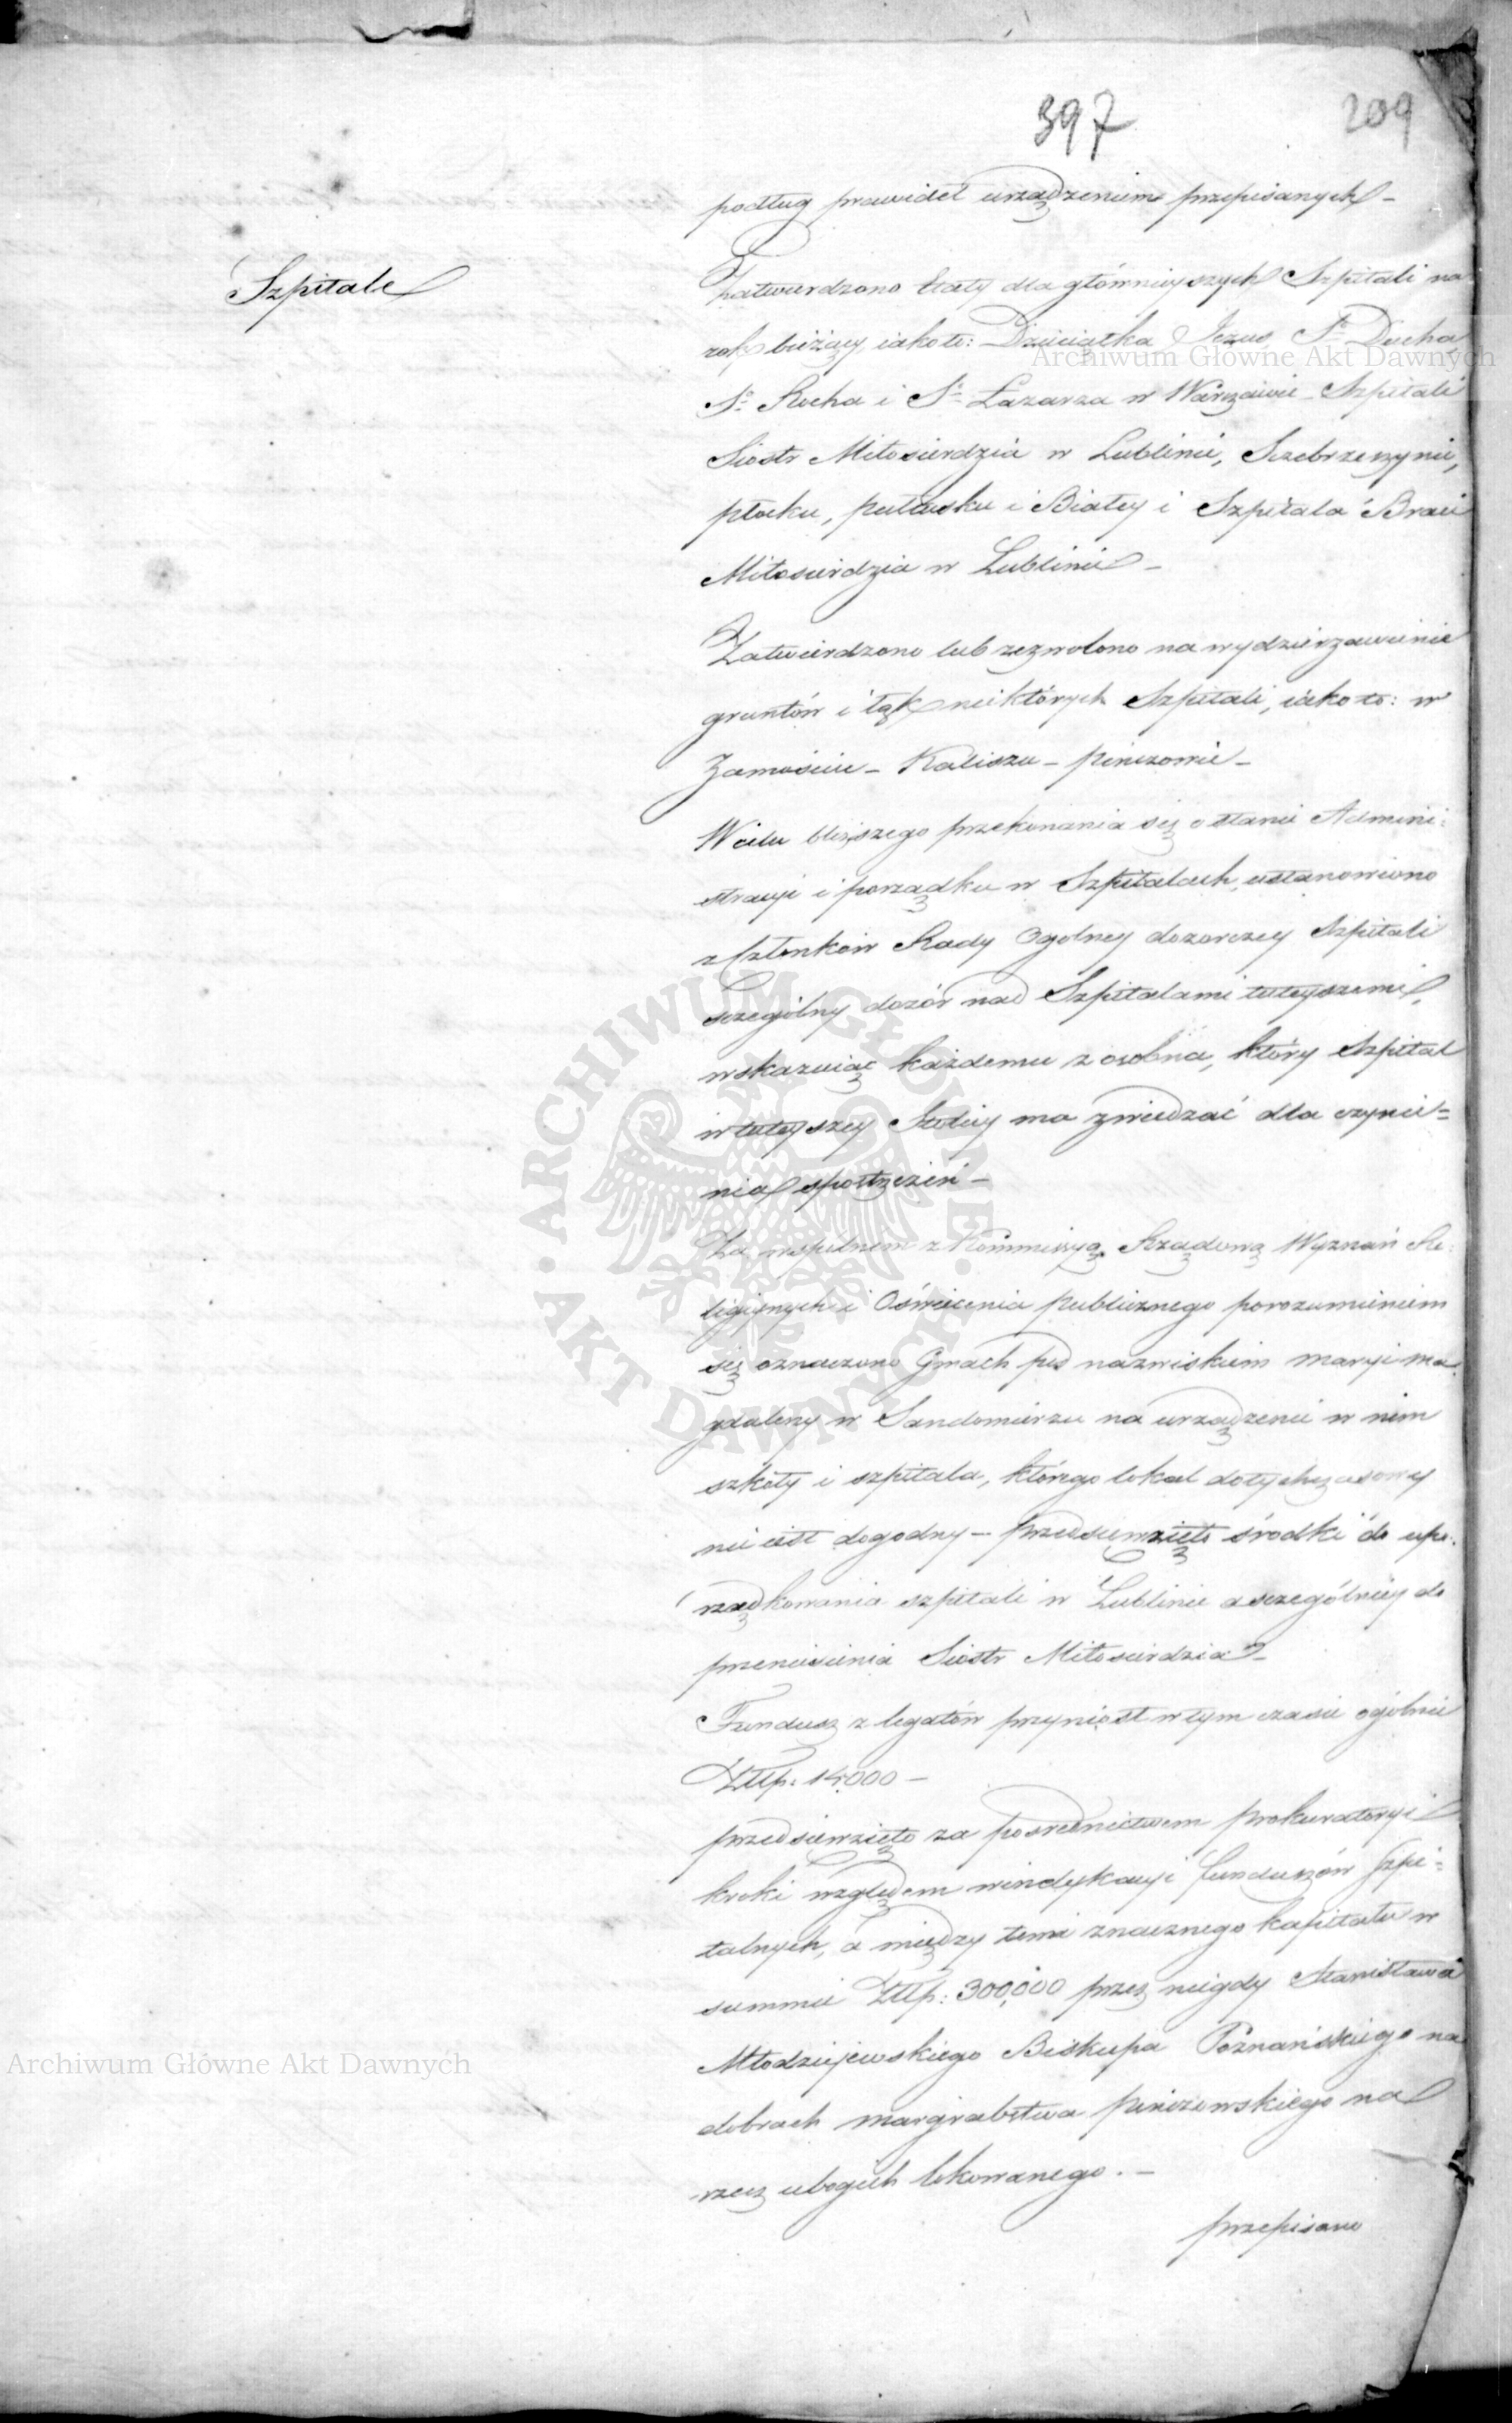 397 209
podług prawideł urządzeniem przepisanych –
Szpitale
Zatwierdzono Etaty dla główniejszych Szpitali na
rok bieżący, iako to: Dzieciątka Jezus, Sgo Ducha
Sgo Rocha i Sgo Łazarza w Warszawie – Szpitali
Siostr Miłosierdzia w Lublinie, Szczebrzeszynie,
płocku, pułtusku i Białey i Szpitala Braci
Miłosierdzia w Lublinie –
Zatwierdzono lub zezwolono na wydzierzawienie
gruntów i łąk niektórych Szpitali, iako to: w
Zamościu – Kaliszu – pinczowie –
W celu bliższego przekonania się o stanie Admini:
stracyi i porządku w Szpitalach, ustanowiono
z Członków Rady Ogolney dozorczey Szpitali
szczególny dozór nad Szpitalami tuteyszemi,
wskazuiąc każdemu z osobna, który Szpital
w tuteyszey Stolicy ma zwiedzać dla czynie=
nia spostrzeżeń –
Za wspolnem z Kommissyą Rządową Wyznań Re:
ligijnych i Oświecenia publicznego porozumieniem
się oznaczono Gmach pod nazwiskiem maryi ma:
gdaleny w Sandomierzu na urządzenie w nim
szkoły i szpitala, którego lokal dotychczasowy
nie iest dogodny – przedsięwzięto środki do upo:
rządkowania szpitali w Lublinie a szczególniey do
przeniesienia Siostr Miłosierdzia –
Fundusz z legatów przyniosł w tym czasie ogólnie
Złłp: 14,000 –
przedsięwzięto za posrednictwem prokuratoryi
kroki względem windykacyi funduszów Szpi=
talnych, a między temi znacznego kapitału w
summie Złłp: 300,000 przez niegdy Stanisława
Młodziejewskiego Biskupa Poznańskiego na
dobrach margrabstwa pinczowskiego na
rzecz ubogich lokowanego. –
przepisano
Archiwum Główne Akt Dawnych
Archiwum Główne Akt Dawnych
ARCHIWUM GŁÓWNE AKT DAWNYCH